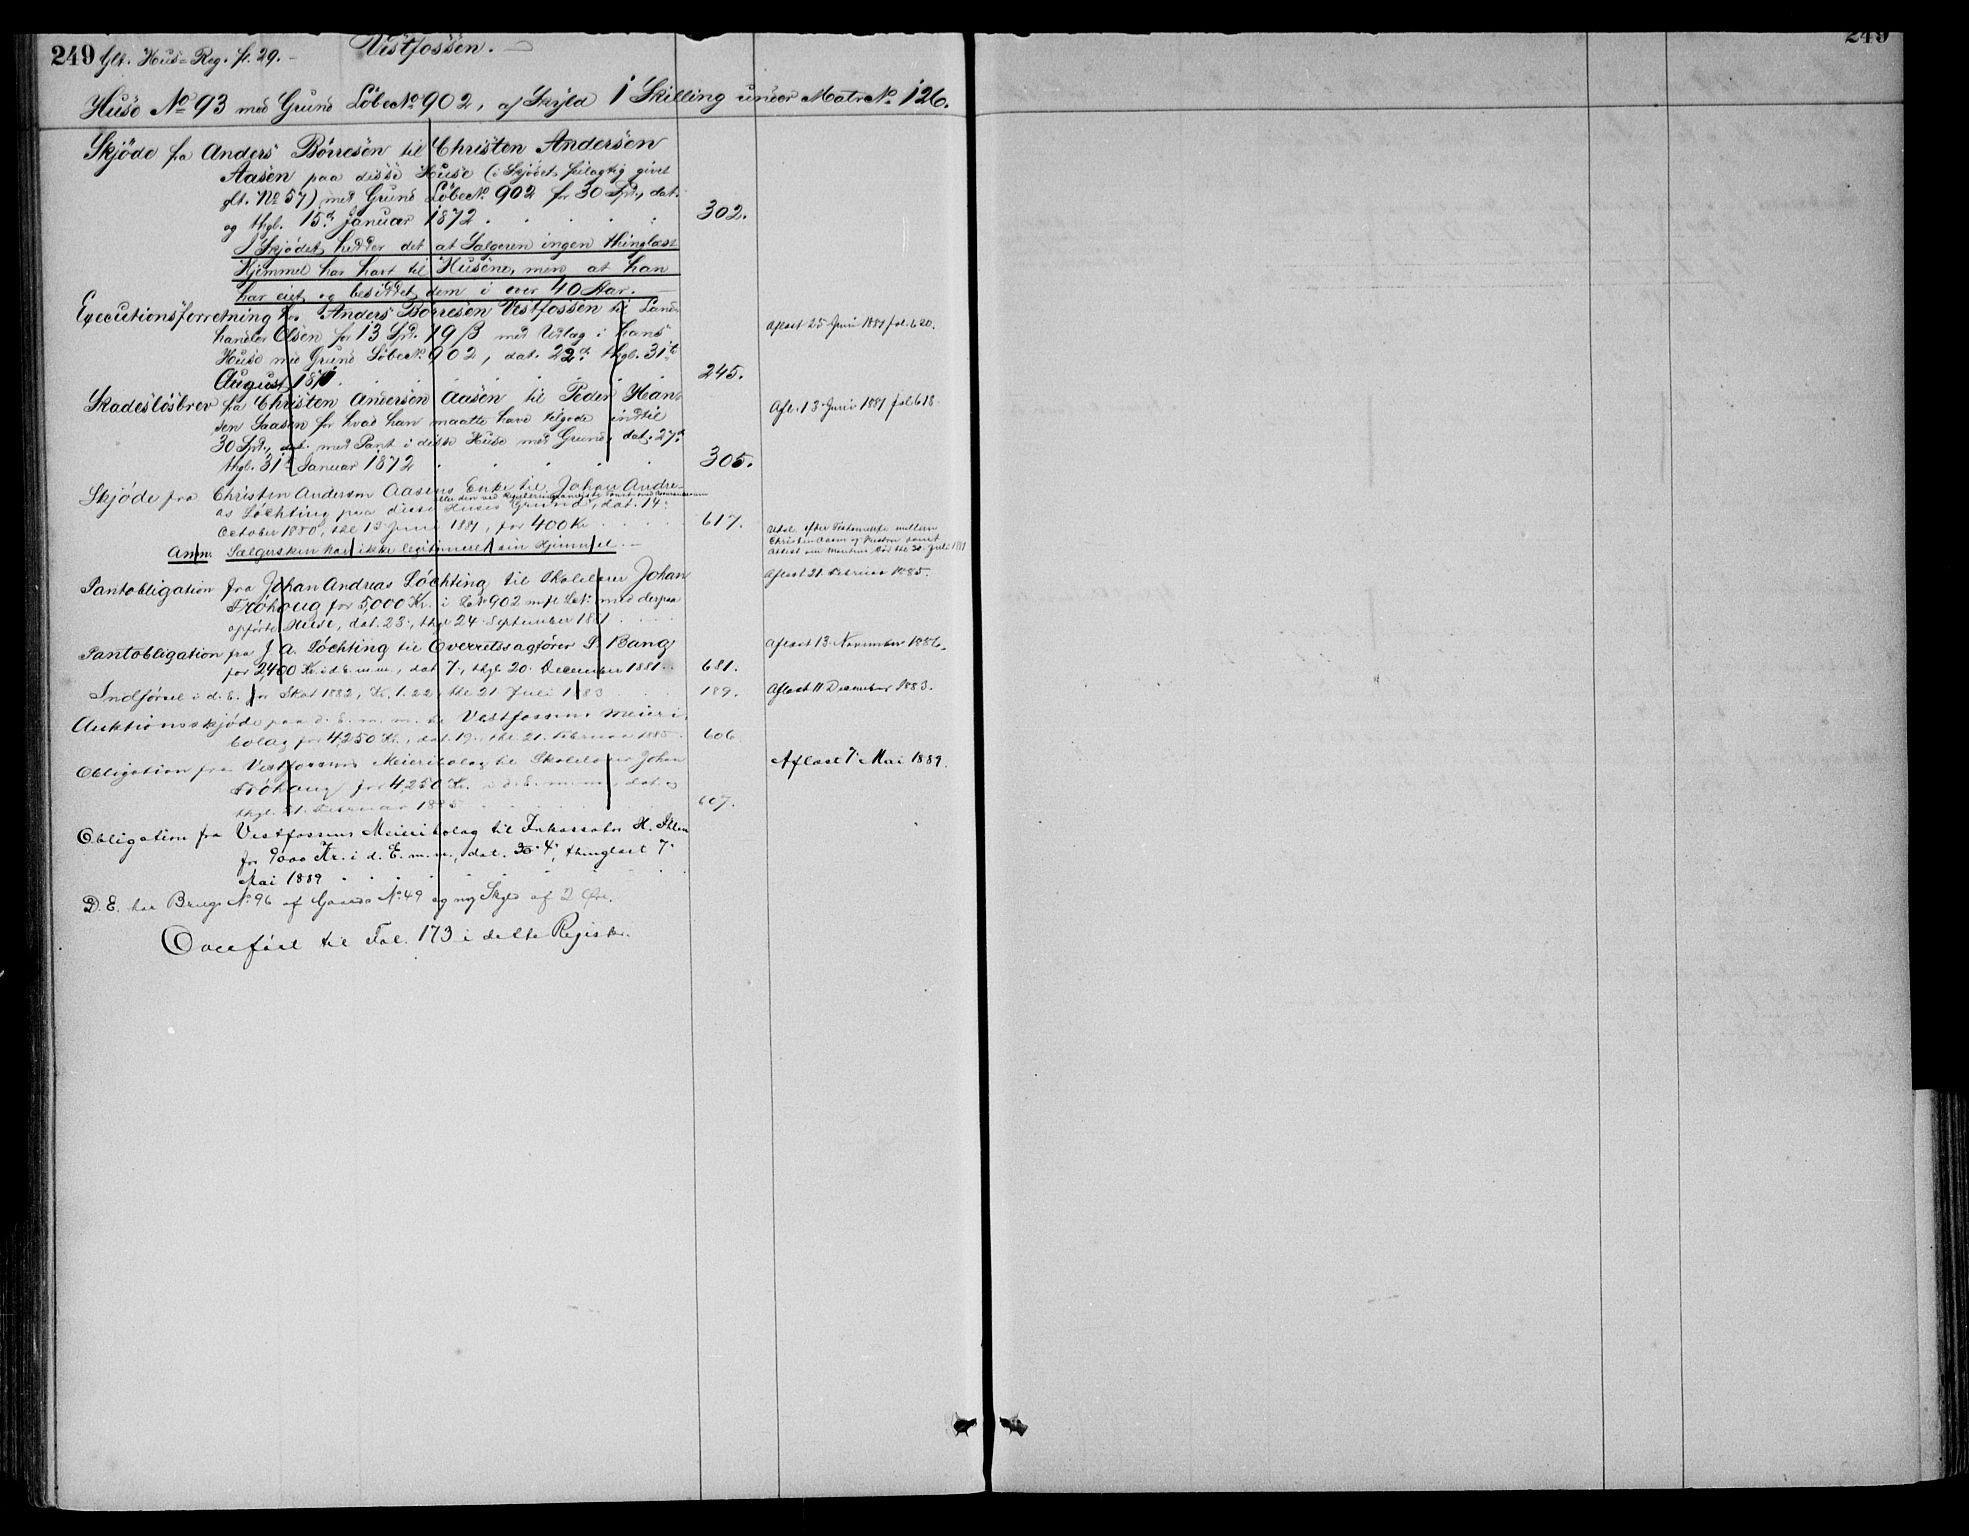 249 Gl. Hus-Reg. fl. 29. Vestfossen.
249
Huse No 93 med Grund LøbeNo 902, af Skyld 1 Skilling under Matr No 126.
Skjøde fra Anders Børresen til Christen Andersen
Aasen paa disse Huse (i Skjødet feilagtig givet
No 57) med Grund LøbeNo 902 for 30 Spd., dat.
og thgl. 15d Januar 1872 . . . . 302.
I Skjødet hedder det at Sælgeren ingen thinglæst
Hjemmel har havt til Husene, men at han
har eiet og besiddet dem i over 40 Aar.
Executionsforretning hos Anders Børresen Vestfossen til Land-
handler Olsen for 13 Spd. 19 β med Udlæg i hans
Huse med Grund LøbeNo 902, dat. 22d thgl. 31te
August 1871 . . . . . 245.
Aflæst 25 Juni 1881 fol. 620.
Skadesløsbrev fra Christen Andersen Aasen til Peder Han-
sen Saasen for hvad han maatte have tilgode indtil
30 Spd., med Pant i disse Huse med Grund, dat. 27d
thgl. 31te Januar 1872 . . . . 305.
Afl. 13 Juni 1881 fol. 618.
Skjøde fra Christen Andersen Aasens Enke til Johan Andre-
as Løchting paa disse Huses Grund, dat. 14
October 1880, thl 13 Juni 1881, for 400 Kr . . . . 617.
Anm. Sælgersken har ikke legitimeret sin Hjemmel. —
Udst. efter Testamente mellem
Christen Aasen og Hustru samt
Attest om Mandens Død thl 20 Juli 1881
Pantobligation fra Johan Andreas Løchting til Skolelærer Johan
Frøhaug for 5,000 Kr. i LNo 902 m fl LNo med derpaa
opførte Huse, dat. 23, thgl 24 September 1881 . . . .
Aflæst 21. Februar 1885.
Pantobligation fra J. A. Løchting til Overretssagfører P. Bang
for 2,400 Kr. i d. E. m. m., dat. 7, thgl. 20. December 1881 . . 681.
Aflæst 13. November 1886.
Indførsel i d. E. for Skat 1882, Kr. 1.22, thl 21 Juli 1883 . . . . 189.
Aflæst 11 December 1883.
Auktionsskjøde paa d. E. m. m. til Vestfossens Meieri-
bolag for 4,250 Kr., dat. 19., thl 21. Februar 1885. 606
Obligation fra Vestfossens Meieribolag til Skolelærer Johan
Frøhaug for 4,250 Kr. i d. E. m. m., dat. og
thgl. 21. Februar 1885 . . . . 607.
Aflæst 7. Mai 1889.
Obligation fra Vestfossens Meieribolag til Inkassator H. Ihlen
for 9000 Kr. i d. E. m. m., dat. 4., thinglæst 7.
Mai 1889 . . . . . .
D. E. har Brugs No 96 af Gaards No 49 og ny Skyld af 2 Øre.
Overført til Fol. 173 i dette Register.